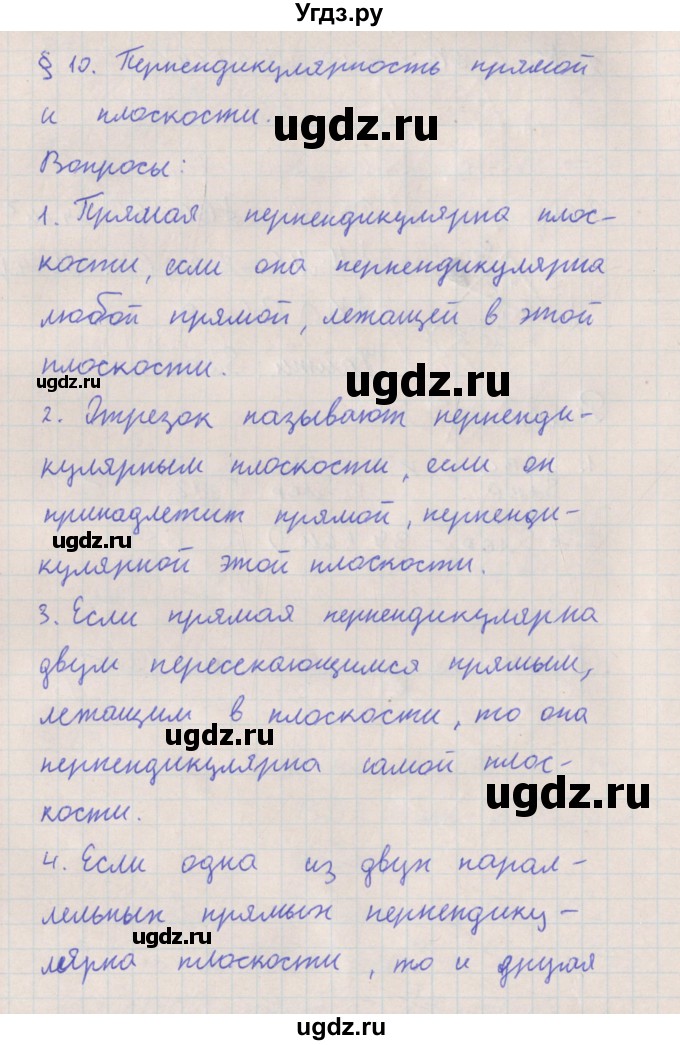 Угдз.ру
§ 10. Перпендикулярность прямой
и плоскости.
ugdz.ru
Вопросы:
1. Прямая перпендикулярна плос-
кости, если она перпендикулярна
любой прямой, лежащей в этой
плоскости.
ugdz.ru
ugdz.ru
2. Отрезок называют перпенди-
кулярным плоскости, если он
принадлежит прямой, перпенди-
ugdz.ru
кулярной этой плоскости.
3. Если прямая перпендикулярна
двум пересекающимся прямым,
лежащим в плоскости, то она
ugdz.ru
перпендикулярна самой плос-
кости.
ugdz.ru
4. Если одна из двух парал-
лельных прямых перпендику-
ugdz.ru
лярна плоскости, то и другая
ugdz.ru